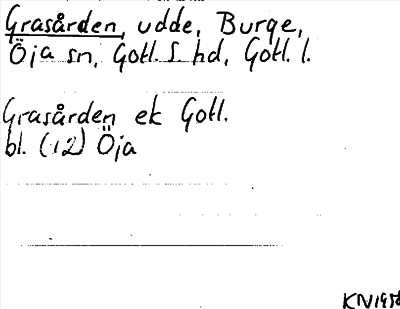 Grasården, udde, Burge,
Öja sn, Gotl. S. hd, Gotl. l.
Grasården ek Gotl.
bl. (12) Öja